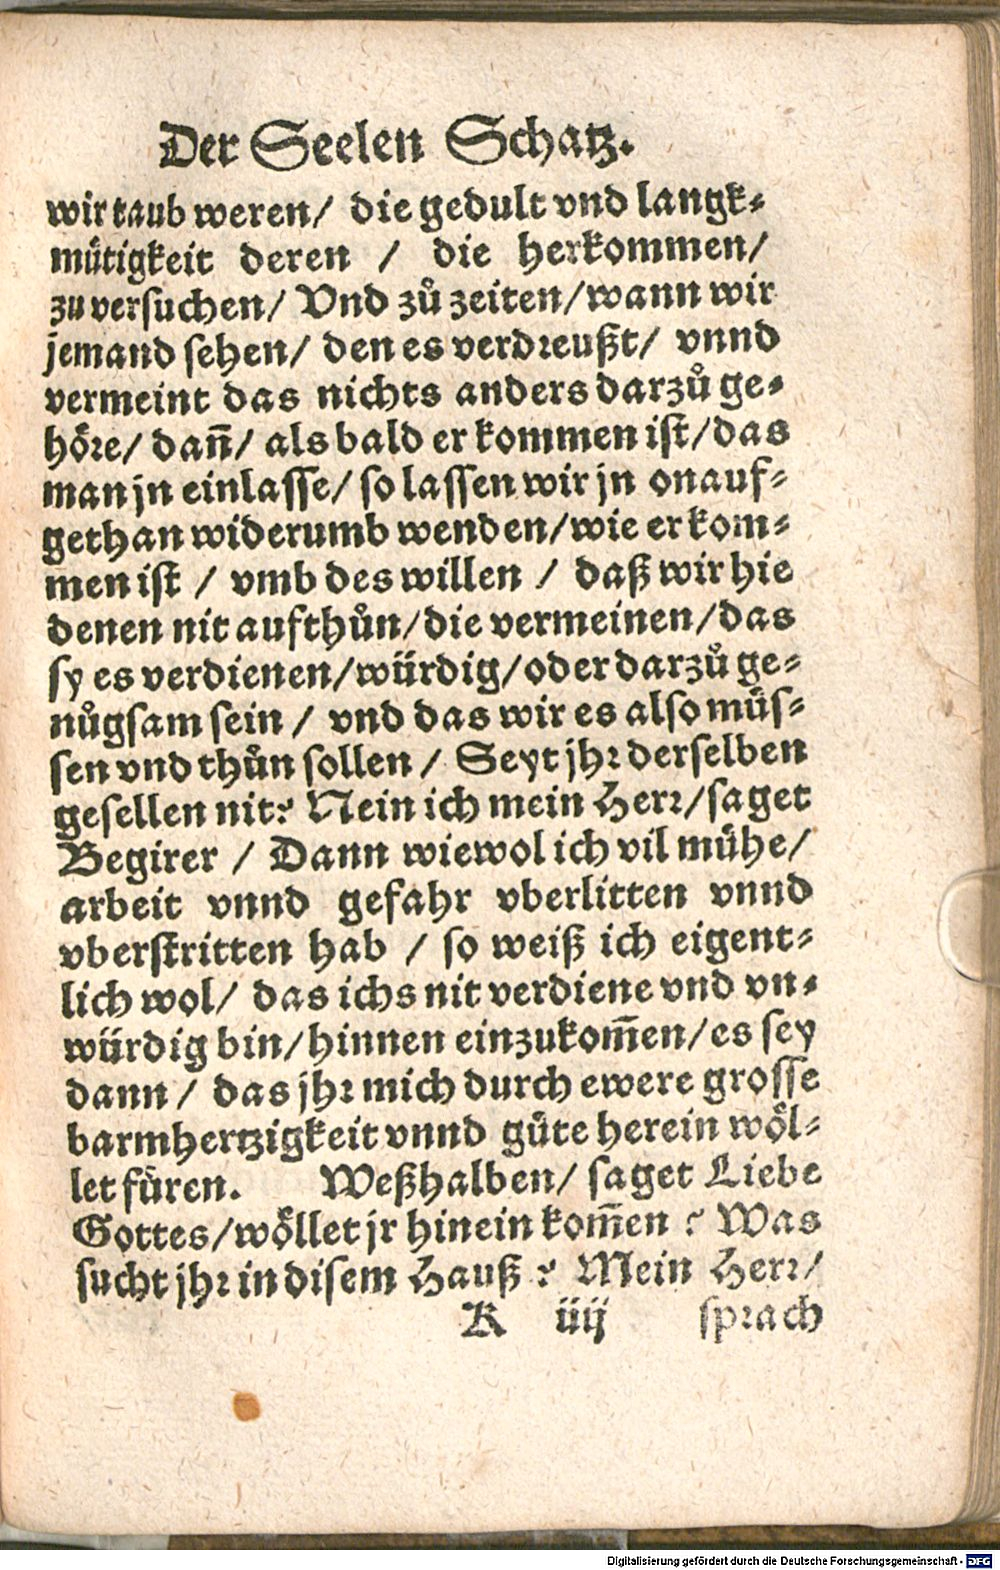 Der Seelen Schatz.
wir taub weren/ die gedult vnd langk-
mütigkeit deren / die herkommen/
zu versuchen/ Vnd zů zeiten/wann wir
jemand sehen/ den es verdreußt/ vnnd
vermeint das nichts anders darzů ge-
höre/ dañ/ als bald er kommen ist/das
man jn einlasse/ so lassen wir jn onauf-
gethan widerumb wenden/wie er kom-
men ist / vmb des willen / daß wir hie
denen nit aufthůn/die vermeinen/das
sy es verdienen/würdig/oder darzů ge-
nůgsam sein / vnd das wir es also müs-
sen vnd thůn sollen / Seyt jhr derselben
gesellen nit? Nein ich mein Herr/saget
Begirer / Dann wiewol ich vil mühe/
arbeit vnnd gefahr vberlitten vnnd
vberstritten hab / so weiß ich eigent-
lich wol/ das ichs nit verdiene vnd vn-
würdig bin/hinnen einzukom̃en/es sey
dann/ das jhr mich durch ewere grosse
barmhertzigkeit vnnd güte herein wöl-
let füren. Weßhalben/ saget Liebe
Gottes/wöllet jr hinein kom̃en ? Was
sucht jhr in disem Hauß ? Mein Herr/
K iiij sprach
Digitalisierung gefördert durch die Deutsche Forschungsgemeinschaft - DFG